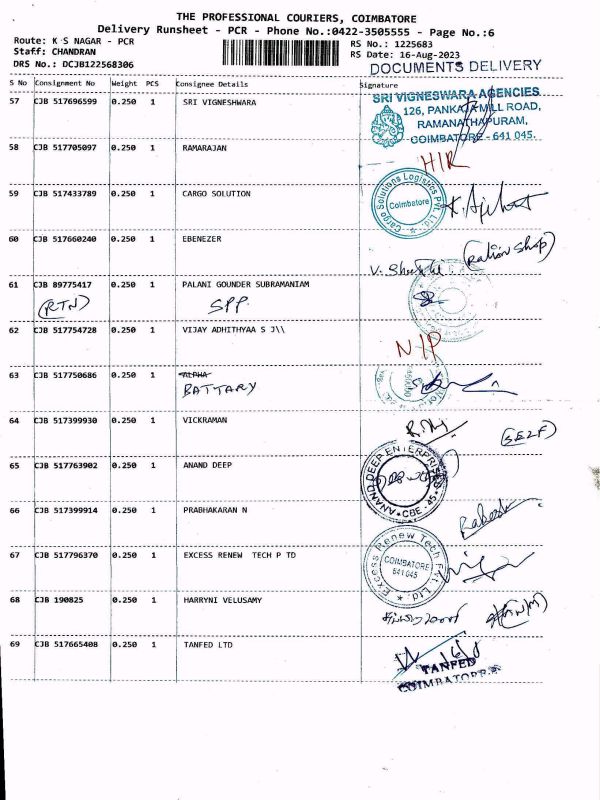 THE PROFESSIONAL COURIERS, COIMBATORE
Delivery Runsheet - PCR - Phone No.:0422-3505555 - Page No.:6
Route: K S NAGAR - PCR
Staff: CHANDRAN
DRS No.: DCJB122568306
RS No.: 1225683
RS Date: 16-Aug-2023
DOCUMENTS DELIVERY
S No Consignment No Weight PCS Consignee Details Signature
57 CJB 517696599 0.250 1 SRI VIGNESHWARA
SRI VIGNESWARA AGENCIES
126, PANKAJA MILL ROAD,
RAMANATHAPURAM,
COIMBATORE - 641 045.
58 CJB 517705097 0.250 1 RAMARAJAN
59 CJB 517433789 0.250 1 CARGO SOLUTION
Cargo Solutions Logistics Pvt. Ltd.
Coimbatore
60 CJB 517660240 0.250 1 EBENEZER
(Ration Shop)
61 CJB 89775417 0.250 1 PALANI GOUNDER SUBRAMANIAM
(RTN) SPP.
62 CJB 517754728 0.250 1 VIJAY ADHITHYAA S J\\
63 CJB 517750686 0.250 1 ALPHA
BATTARY
64 CJB 517399930 0.250 1 VICKRAMAN
(SELF)
65 CJB 517763902 0.250 1 ANAND DEEP
ANAND DEEP ENTERPRISES
CBE - 45
66 CJB 517399914 0.250 1 PRABHAKARAN N
67 CJB 517796370 0.250 1 EXCESS RENEW TECH P TD
Excess Renew Tech Pvt. Ltd.
COIMBATORE
641 045
68 CJB 190825 0.250 1 HARRYNI VELUSAMY
69 CJB 517665408 0.250 1 TANFED LTD
TANFED
COIMBATORE